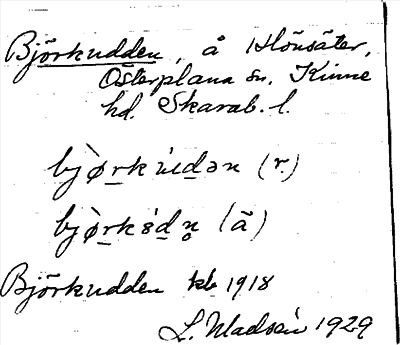 Björkudden, å Hönsäter,
Österplana sn. Kinne
hd. Skarab. l.
bjø̀rkúdən (r.)
bjø̀rködn̥ (ä)
Björkudden kb 1918
L. 1929